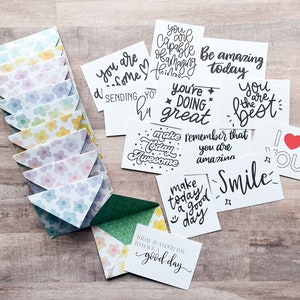 you are
awesome
you are
capable
of amazing
things
Be amazing
today
SENDING
you're
DOING
great
You are
the
best
make
today
Awesome
remember that
you are
amazing
I
YOU
make
today a
good
day
Smile
TODAY IS A GOOD DAY
TO HAVE A
good day